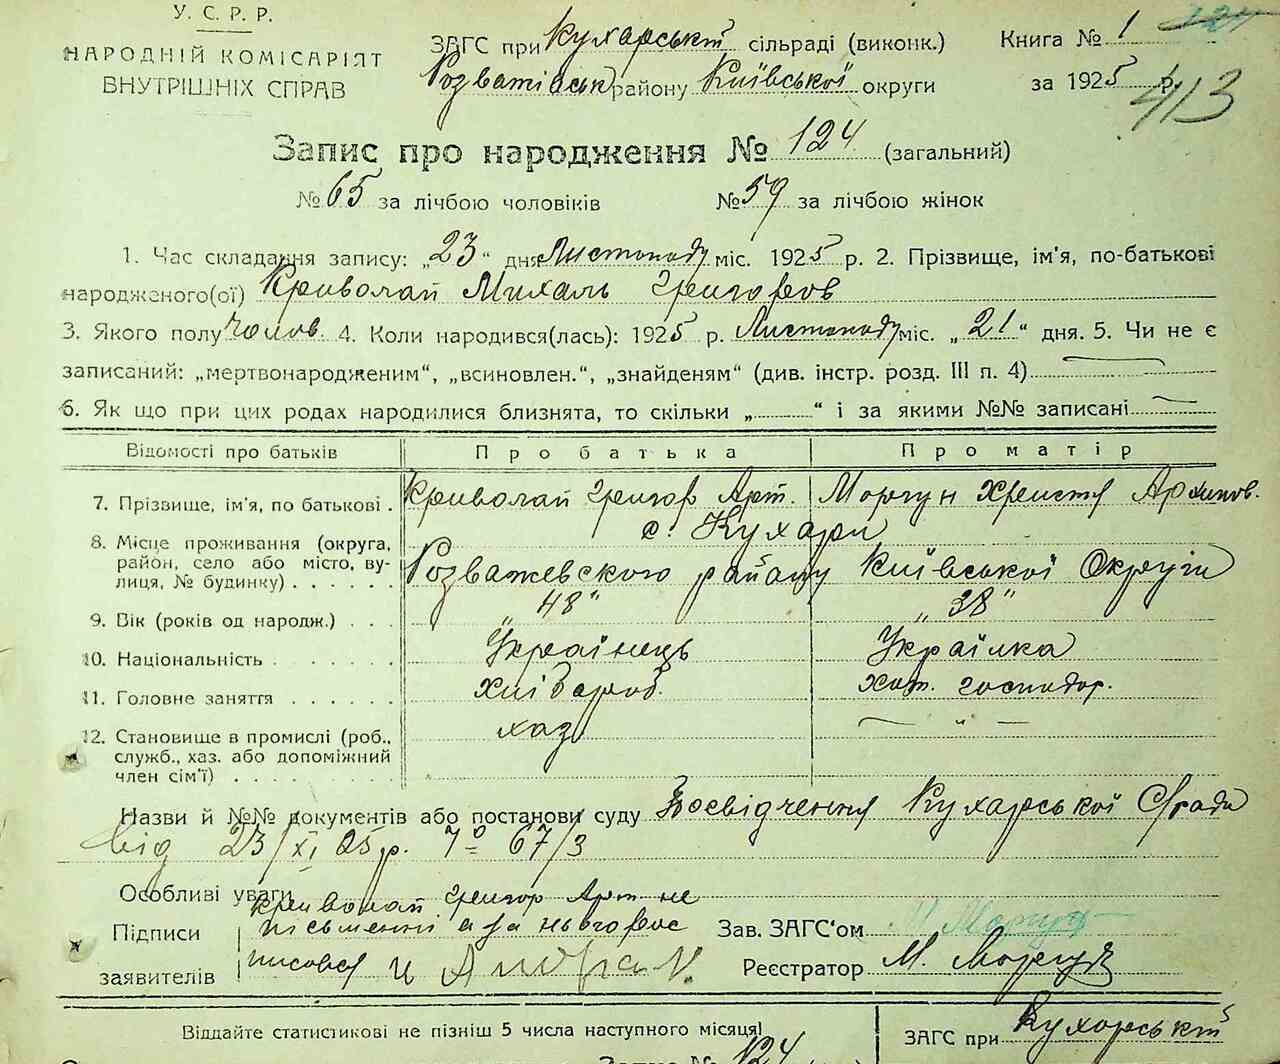 У. С. Р. Р.
НАРОДНІЙ КОМІСАРІЯТ
ВНУТРІШНІХ СПРАВ
ЗАГС при Кухарській сільраді (виконк.)
Розватівськ району Київської округи
Книга № 1
за 1925 р.
413
Запис про народження № 124 (загальний)
№ 65 за лічбою чоловіків № 59 за лічбою жінок
1. Час складання запису: „23“ дня Листопаду міс. 1925 р. 2. Прізвище, ім'я, по-батькові
народженого(ої) Криволап Михаль Григоров
3. Якого полу чолов. 4. Коли народився(лась): 1925 р. Листопаду міс. „21“ дня. 5. Чи не є
записаний: „мертвонародженим“, „всиновлен.“, „знайденям“ (див. інстр. розд. III п. 4)
6. Як що при цих родах народилися близнята, то скільки „ “ і за якими №№ записані
Відомості про батьків Про батька Про матір
7. Прізвище, ім'я, по батькові . Криволап Григор Арт. Моргун Христя Архипов.
с. Кухари
8. Місце проживання (округа, район, село або місто, вулиця, № будинку) . . . . . Розважевского району Київської Округи
9. Вік (років од народж.) . . . „48“ „38“
10. Національність . . . . . . . Українець Українка
11. Головне заняття . . . . . . хлібороб. хат. господар.
12. Становище в промислі (роб., служб., хаз. або допоміжний член сім'ї) . . . . . . . . . хаз — „ —
Назви й №№ документів або постанови суду Посвідчення Кухарської С/ради
від 23/XI 25 р. № 67/3
Особливі уваги
Криволап Григор Арт не
Підписи письменні а за нього рос
заявителів писався и
Зав. ЗАГС'ом М Моргун
Реєстратор М. Моргун
Віддайте статистикові не пізніш 5 числа наступного місяця!
ЗАГС при Кухарській
Запис № 124